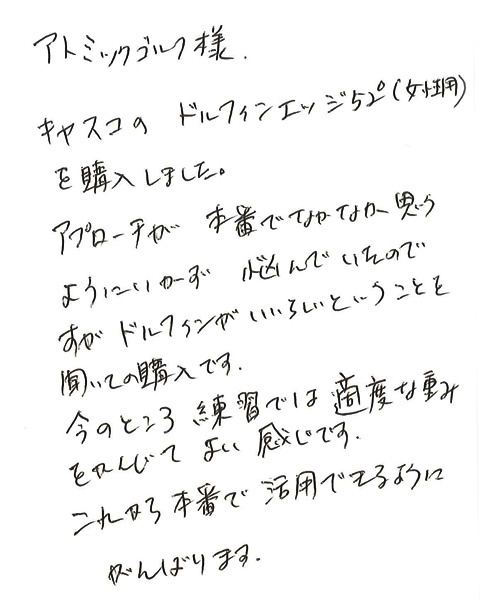 アトミックゴルフ様.
キャスコの ドルフィンエッジ52°(女性用)
を購入しました。
アプローチが 本番でなかなか思う
ようにいかず 悩んでいたので
すが ドルフィンがいいらしいということを
聞いての購入です.
今のところ 練習では 適度な重み
をかんじて よい 感じです.
これから 本番で 活用できるように
がんばります.